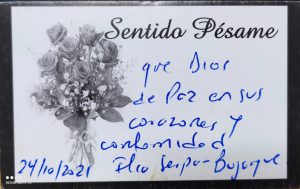 Sentido Pésame
que Dios
de Paz en sus
corazones y
conformidad
24/10/2021